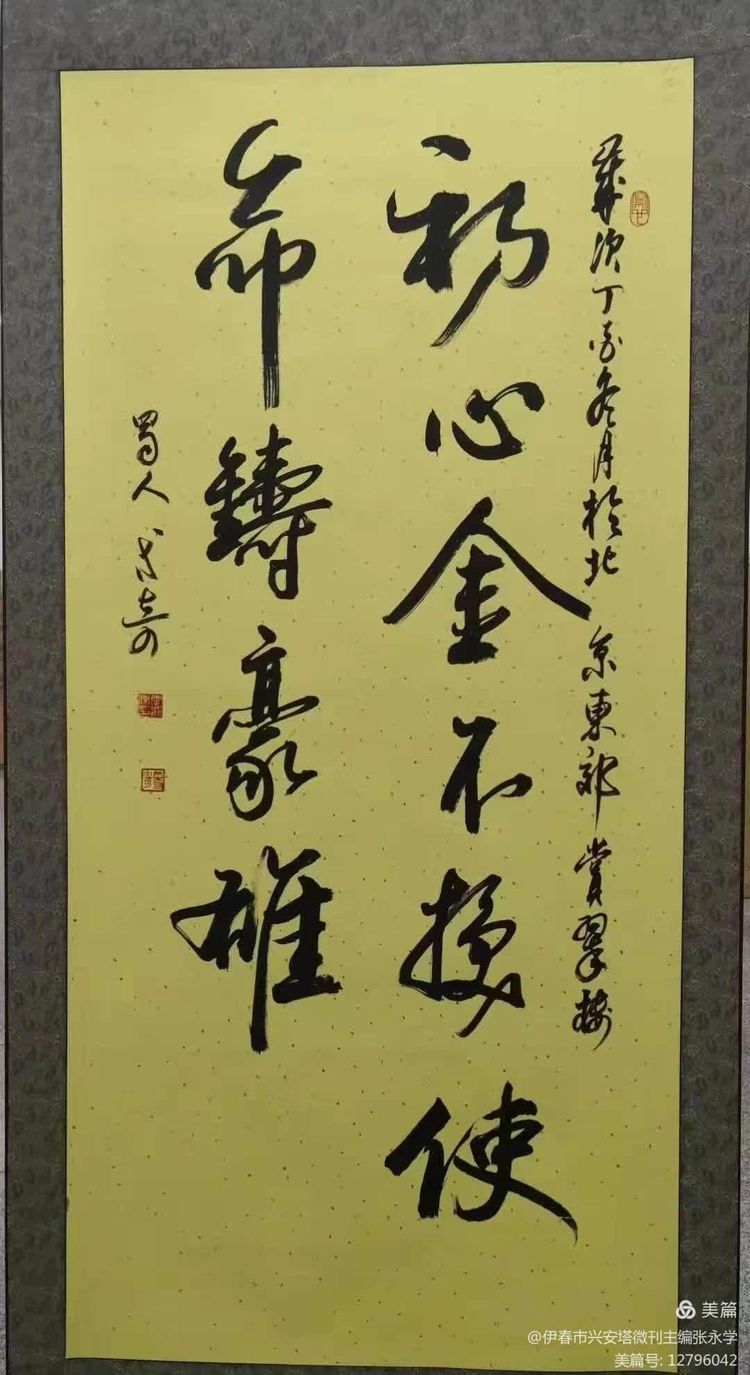 歲次丁酉冬月於北京東郊賞翠樓
初心金不換使
命鑄豪雄
蜀人
美篇
@伊春市兴安塔微刊主编张永学
美篇号: 12796042